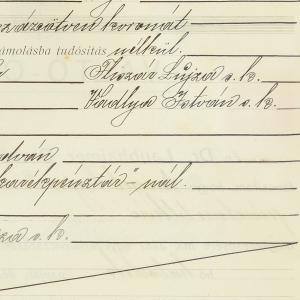 ezázötven koronát
zámolásba tudósítás nélkül.
Pliszár Lujza s. k.
Hadlya István s. k.
dván
karékpénztár"-nál.
za s. k.